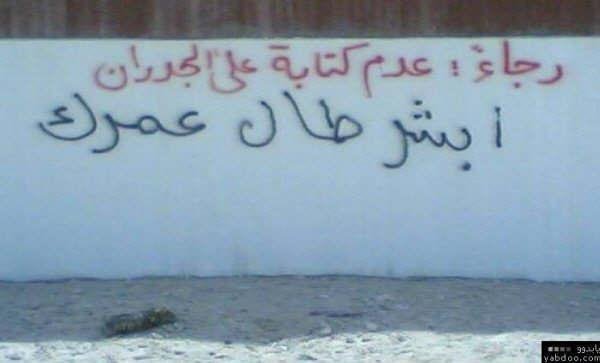 رجاءً : عدم كتابة على الجدران
ابشر طال عمرك
يابدوو
yabdoo.com